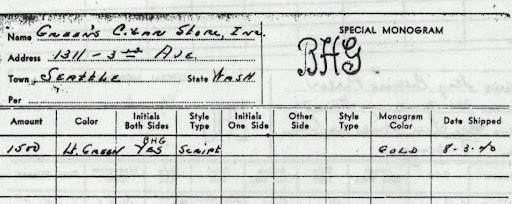 Name Green's Cigar Store, Inc.
SPECIAL MONOGRAM
Address 1311 - 3rd Ave.
BHG
Town Seattle State Wash
Per
Amount Color Initials Both Sides Style Type Initials One Side Other Side Style Type Monogram Color Date Shipped
1500 Lt. Green BHG YES Script GOLD 8-3-40